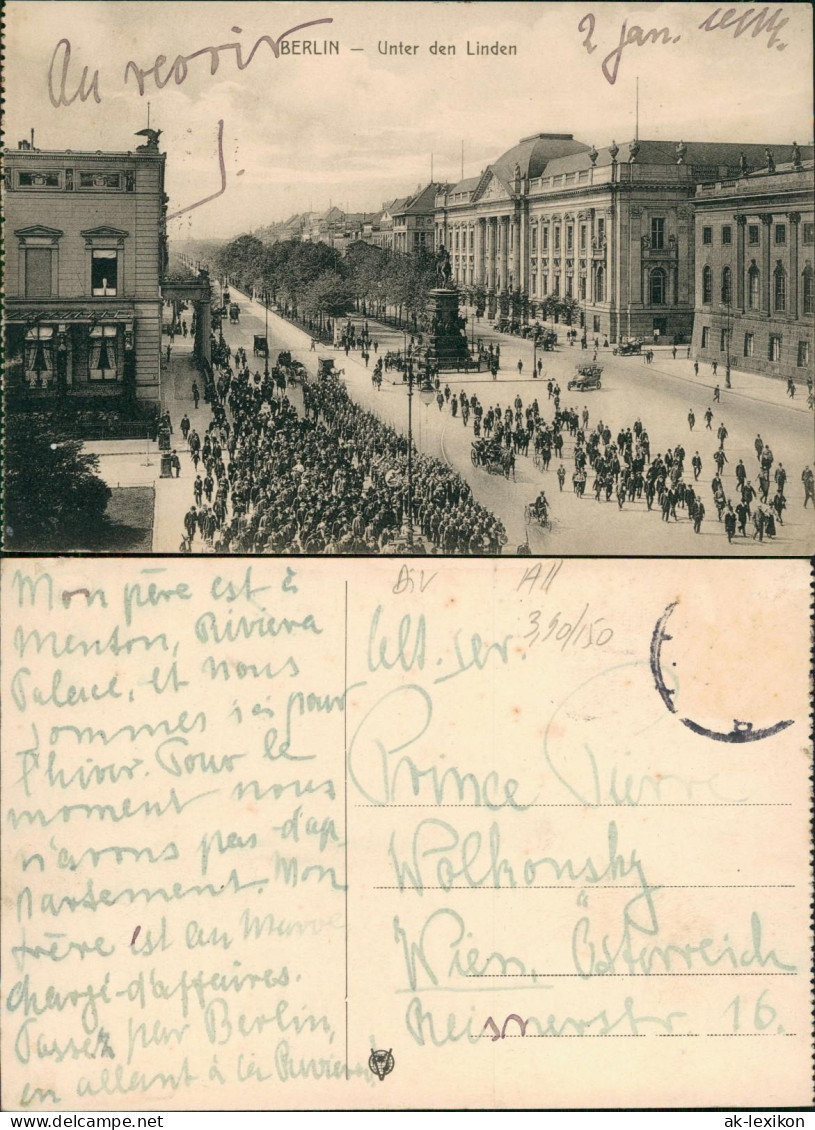 Au revoir
BERLIN — Unter den Linden
2 Jan.
Mon père est à
Menton, Riviera
Palace, et nous
sommes ici pour
l'hiver. Pour le
moment nous
n'avons pas d'ap-
partement. Mon
frère est au Maroc
chargé-d'affaires.
Passez par Berlin,
en allant à la Riviera,
Div
All
3,90/150
Prince Pierre
Wolkonsky
Wien, Österreich
Reisnerstr. 16.
ak-ansichtskarten.de
ak-lexikon